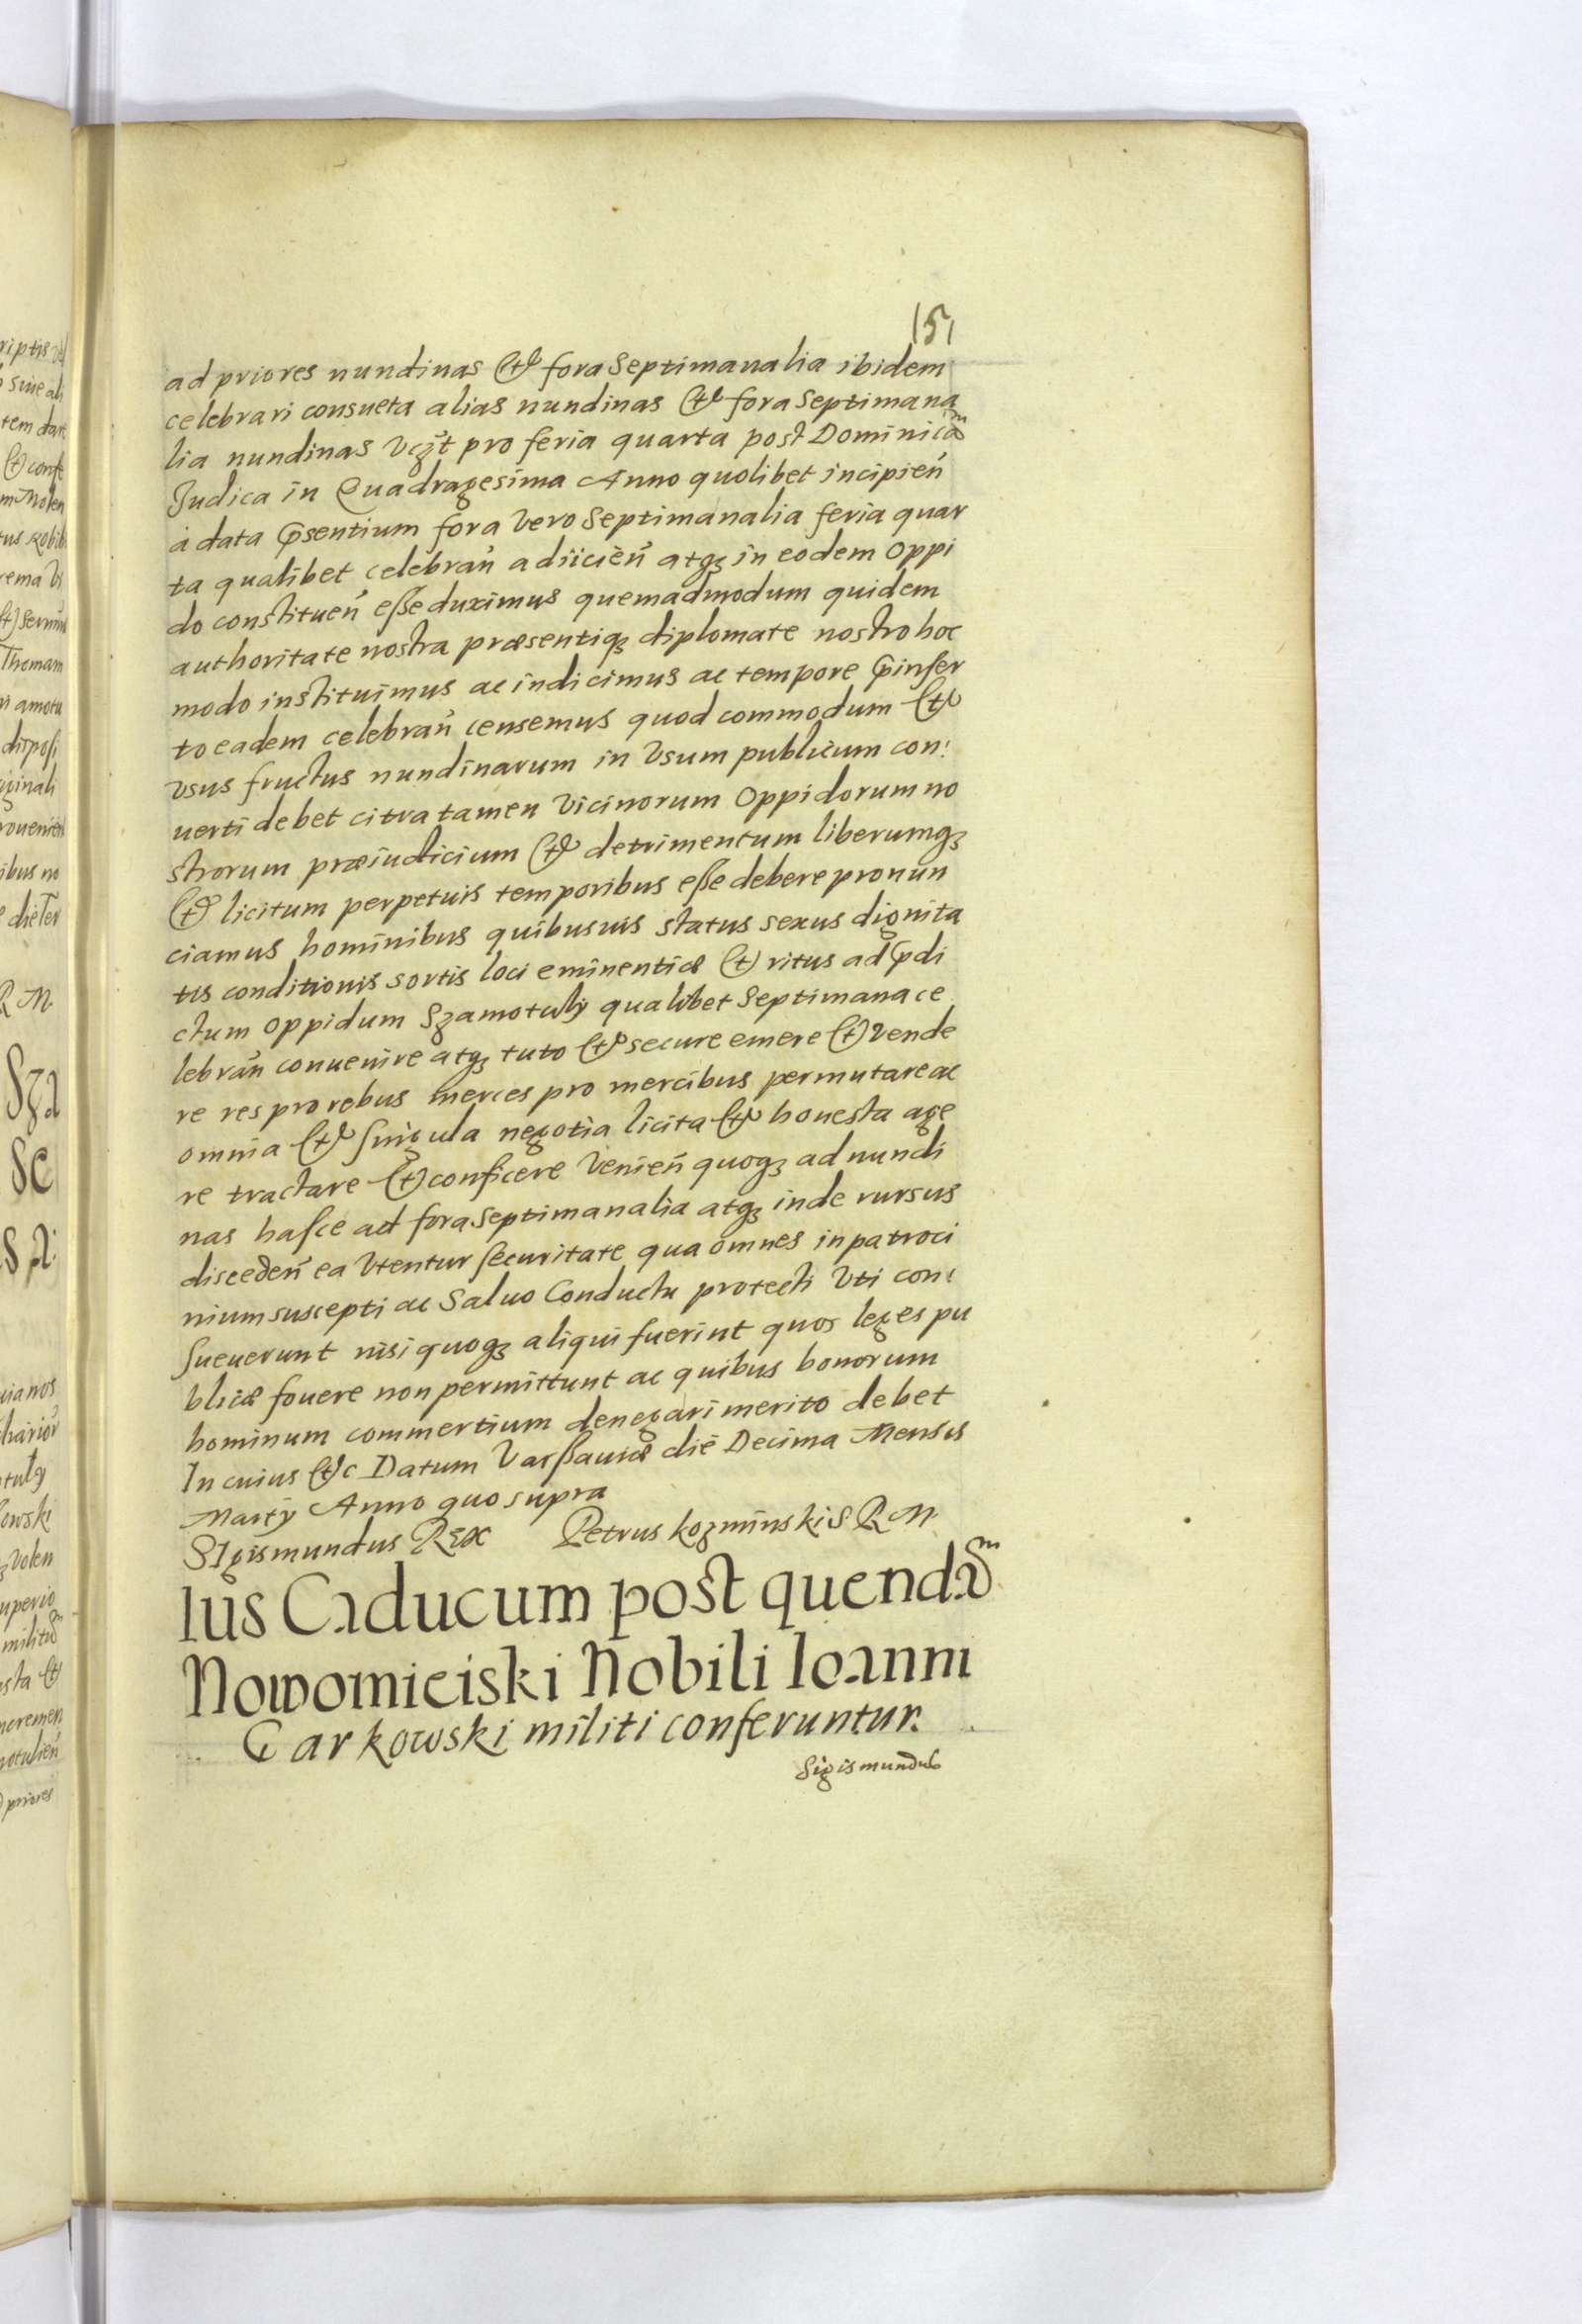 151
ad priores nundinas et fora Septimanalia ibidem
celebrari consueta alias nundinas et fora Septimana
lia nundinas vczt pro feria quarta post Dominicam
Judica in Quadragesima Anno quolibet incipień
a data p̃sentium fora vero Septimanalia feria quar
ta qualibet celebrań adiicień atqz in eodem Oppi
do constitueń eße duximus quemadmodum quidem
authoritate nostra præsentiqz diplomate nostro hoc
modo instituimus ac indicimus ac tempore p̃inser
to eadem celebrań censemus quod commodum et
vsus fructus nundinarum in vsum publicum con:
uerti debet citra tamen vicinorum Oppidorum no
strorum præiudicium et detrimentum liberumqz
et licitum perpetuis temporibus eße debere pronun
ciamus hominibus quibusuis status sexus dignita
tis conditionis sortis loci eminentiæ et ritus ad p̃di
ctum Oppidum Szamotuly qualibet Septimana ce
lebrań conuenire atqz tuto et secure emere et vende
re res pro rebus merces pro mercibus permutare ac
omnia et singula negotia licita et honesta age
re tractare et conficere venień quoqz ad nundi
nas hasce ad fora Septimanalia atqz inde rursus
discedeń ea vtentur securitate qua omnes in patroci
nium suscepti ac Saluo Conductu protecti vti con:
sueuerunt nisi quoqz aliqui fuerint quos leges pu
blicæ fouere non permittunt ac quibus bonorum
hominum commertium denegari merito debet
In cuius etc Datum Varßauiæ die Decima Mensis
Martij Anno quo supra
SIgismundus REx Petrus kozminski S R M
Ius Caducum post quendam
Nowomieiski Nobili Ioanni
Garkowski militi conferuntur.
Sigismundus